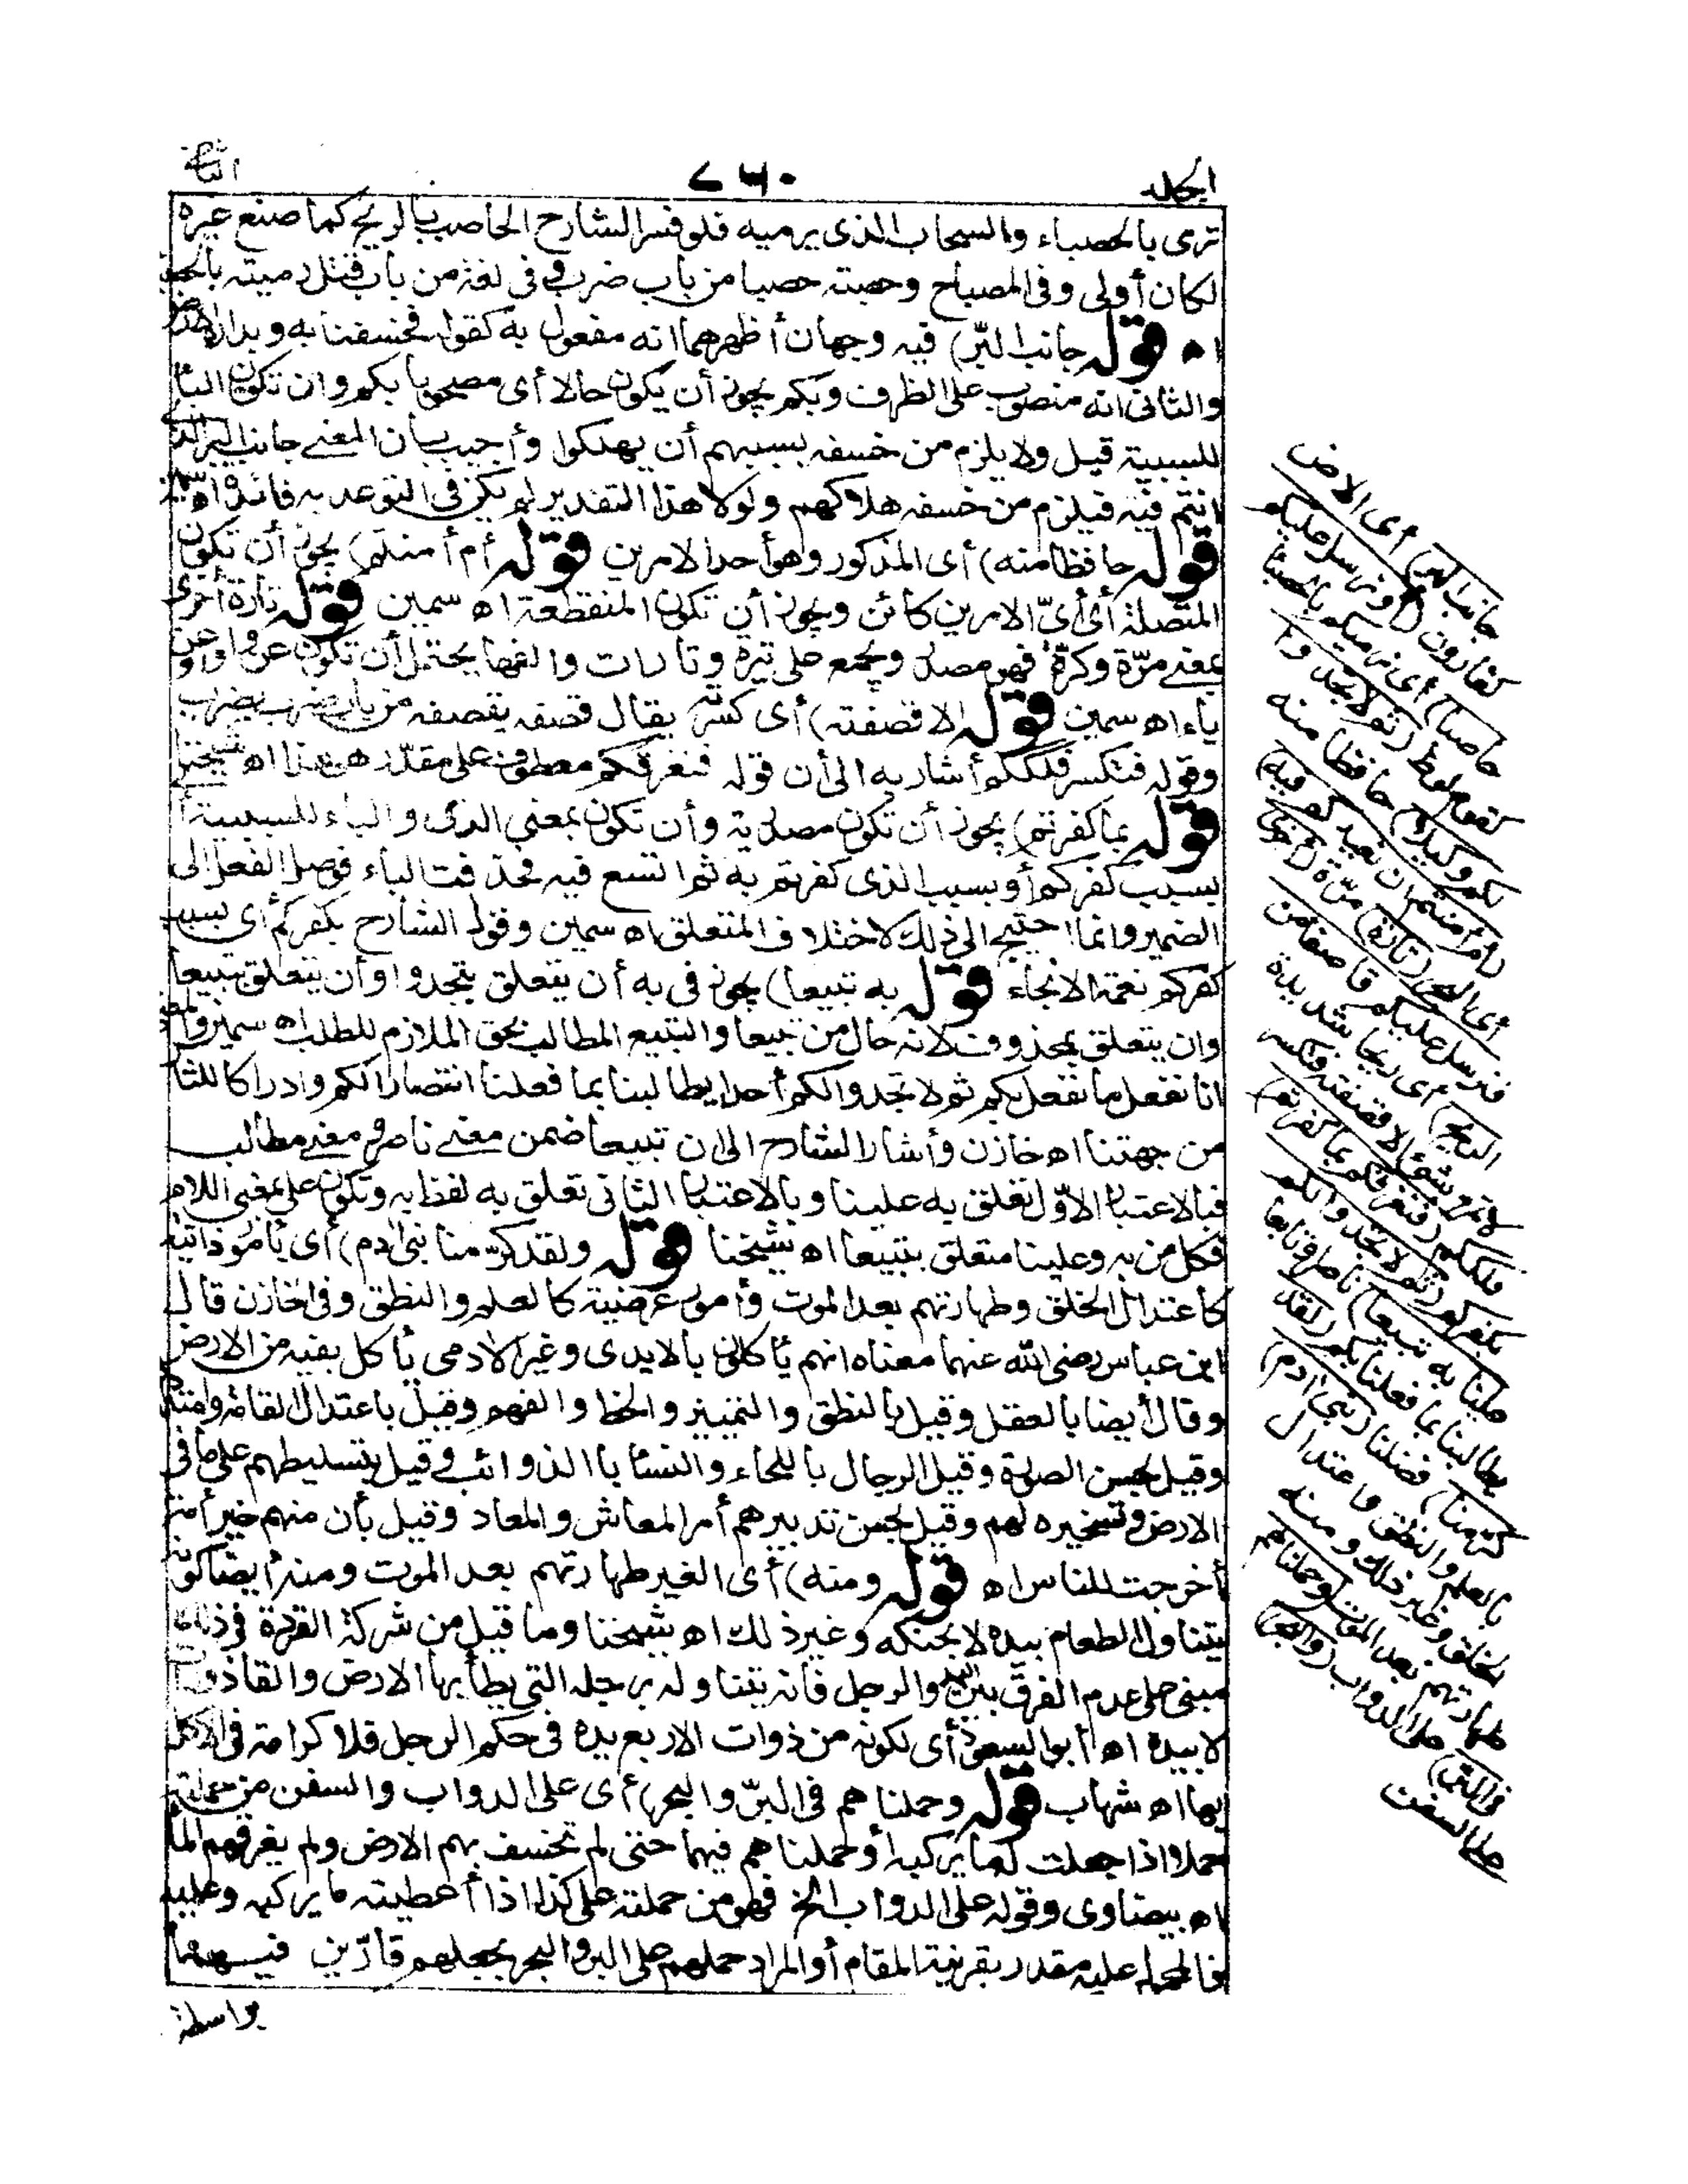 الجلد
٧٦٠
الثانى
ترمى بالحصباء والسحاب الذى يرميه فلو فسر الشارح الحاصب بالريح كما صنع غيره
لكان أولى وفى المصباح وحصبته حصبا من باب ضرب وفى لغة من باب قتل رميته بالحصباء
اه قوله جانب البرّ) فيه وجهان أظهرهما انه مفعول به كقوله فخسفنا به وبداره الارض
والثانى انه منصوب على الظرف وبكم يجوز أن يكون حالا أى مصحوبا بكم وان تكون الباء
للسببية قيل ولا يلزم من خسفه بسببهم أن يهلكوا وأجيب بان المعنى جانب البر الذى
انتم فيه فيلزم من خسفه هلاكهم ولولا هذا التقدير لم يكن فى التوعد به فائدة اه سمين
قوله حافظا منه) أى المذكور وهو أحد الامرين قوله أم أمنتم) يجوز أن تكون
المتصلة أى أىّ الامرين كائن ويجوز أن تكون المنقطعة اه سمين قوله تارة أخرى
بمعنى مرّة وكرة فهو مصدر ويجمع على تيرة وتارات والفها يحتمل أن تكون عن واو وعن
ياء اه سمين قوله الا قصفته) أى كسرته يقال قصفه يقصفه من باب ضرب يضرب
وقوله فتكسر فلككم أشار به الى أن قوله فنغرقكم معطوف على مقدّر هو هذا اه شيخنا
قوله بما كفرتم) يجوز أن تكون مصدرية وأن تكون بمعنى الذى والباء للسببية أى
بسبب كفركم أو بسبب الذى كفرتم به ثم اتسع فيه فحذفت الباء فوصل الفعل الى
الضمير وانما احتيج الى ذلك لاختلاف المتعلق اه سمين وقول الشارح بكفركم أى بسبب
كفركم نعمة الانجاء قوله به تبيعا) يجوز فى به أن يتعلق بتجدوا وأن يتعلق بتبيعا
وان يتعلق بمحذوف لانه حال من تبيعا والتبيع المطالب بحق الملازم للطلب اه سمين والمعنى
انا نفعل ما نفعل بكم ثم لا تجدوا لكم أحدا يطالبنا بما فعلنا انتصارا لكم وادراكا للثأر
من جهتنا اه خازن وأشار الشارح الى ان تبيعا ضمن معنى ناصر ومعنى مطالب
فبالاعتبار الاوّل تعلق به علينا وبالاعتبار الثانى تعلق به لفظ به وتكون على بمعنى اللام
فكل من به وعلينا متعلق بتبيعا اه شيخنا قوله ولقد كرّمنا بنى آدم) أى بأمور ذاتية
كاعتدال الخلق وطهارتهم بعد الموت وأمور عرضية كالعلم والنطق وفى الخازن قال
ابن عباس رضى الله عنهما معناه انهم يأكلون بالايدى وغير الآدمى يأكل بفيه من الارض
وقال أيضا بالعقل وقيل بالنطق والتمييز والخط والفهم وقيل باعتدال القامة وامتدادها
وقيل بحسن الصورة وقيل الرجال باللحاء والنساء بالذوائب وقيل بتسليطهم على ما فى
الارض وتسخيره لهم وقيل بحسن تدبيرهم أمر المعاش والمعاد وقيل بأن منهم خير أمة
أخرجت للناس اه قوله ومنه) أى الغير طهارتهم بعد الموت ومنه أيضا كونه
يتناول الطعام بيده لا بحنكه وغير ذلك اه شيخنا وما قيل من شركة القردة فى ذلك
مبنى على عدم الفرق بين اليد والرجل فانه يتناوله برجله التى يطأ بها الارض والقاذورات
لا بيده اه أبو السعود أى لكونه من ذوات الاربع يده فى حكم الرجل فلا كرامة فى الاكل
بها اه شهاب قوله وحملناهم فى البرّ والبحر) أى على الدواب والسفن من حملته
حملا اذا جعلت له ما يركبه أو حملناهم فيهما حتى لم تخسف بهم الارض ولم يغرقهم الماء
اه بيضاوى وقوله على الدواب الخ فهو من حملته على كذا اذا أعطيته ما يركبه وعليه
فالمحمول عليه مقدر بقرينة المقام أو المراد حملهم على البر والبحر بجعلهم قارّين فيهما
بواسطة
جانب البر) أى الارض
كقارون (أو نرسل عليكم
حاصبا) أى نرميكم بالحصباء
كقوم لوط (ثم لا تجدوا
لكم وكيلا) حافظا منه
(أم أمنتم أن نعيدكم فيه)
أى البحر (تارة) مرّة (أخرى
فنرسل عليكم قاصفا من
الريح) أى ريحا شديدة
لا تمر بشئ الا قصفته فتكسر
فلككم (فنغرقكم بما كفرتم)
بكفركم (ثم لا تجدوا لكم
علينا به تبيعا) ناصرا وتابعا
يطالبنا بما فعلنا بكم (ولقد
كرّمنا) فضلنا (بنى آدم)
بالعلم والنطق واعتدال
الخلق وغير ذلك ومنه
طهارتهم بعد الموت (وحملناهم
فى البرّ) على الدواب (والبحر)
على السفن